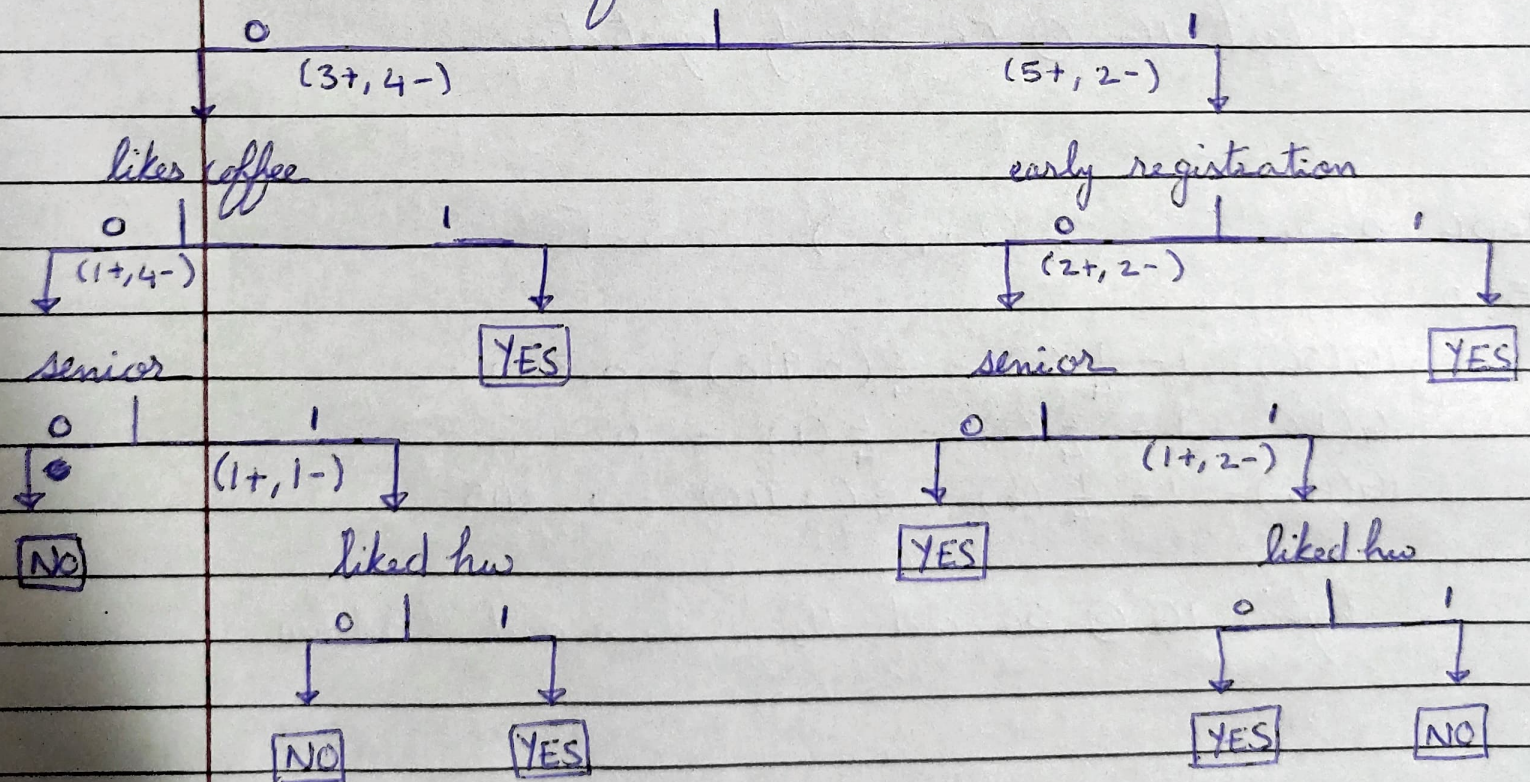 0 1
(3+, 4-) (5+, 2-)
likes coffee early registration
0 1 0 1
(1+, 4-) (2+, 2-)
YES YES
senior senior
0 1 0 1
(1+, 1-) (1+, 2-)
NO liked hw YES liked hw
0 1 0 1
NO YES YES NO